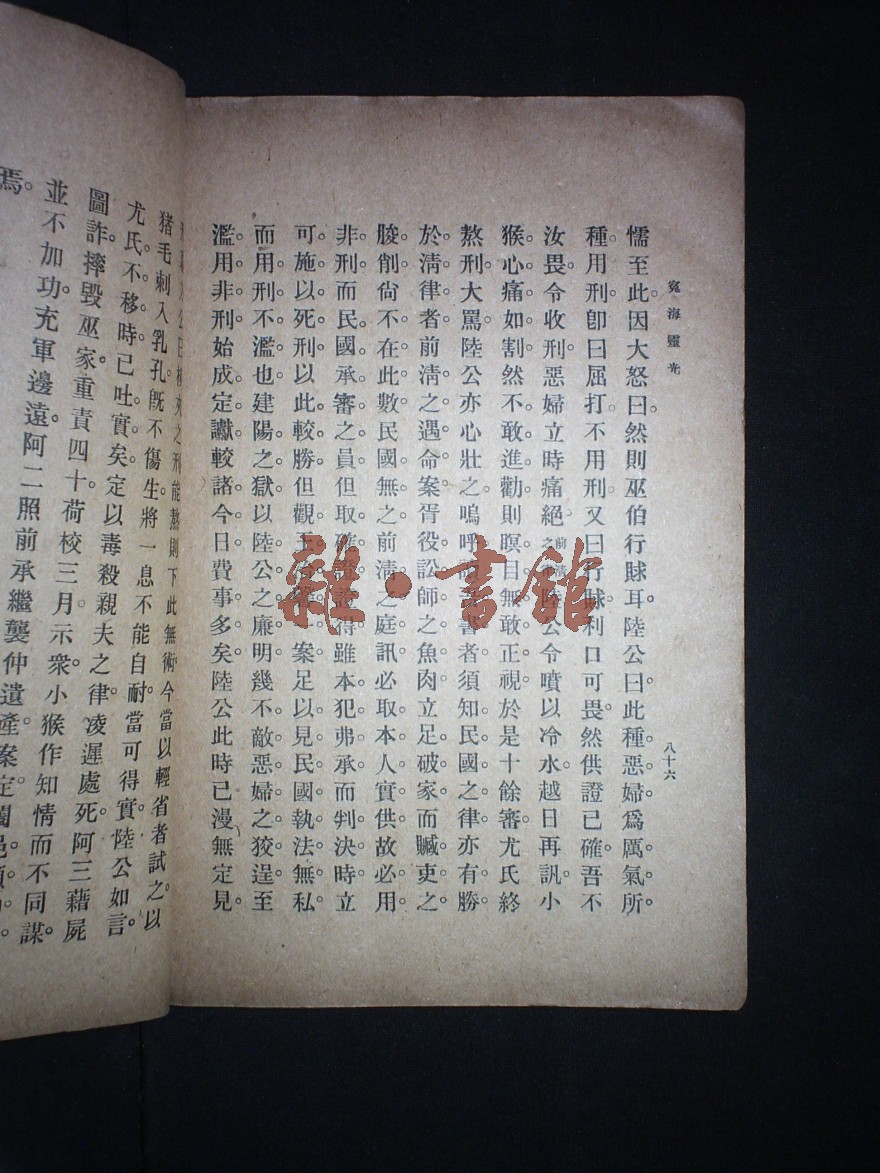 冤海靈光
八十六
懦至此。因大怒曰。然則巫伯行賕耳。陸公曰。此種惡婦。爲厲氣所
種。用刑卽曰屈打。不用刑又曰行賕。利口可畏。然供證已確。吾不
汝畏。令收刑。惡婦立時痛絕。陸公令噴以冷水。越日再訊。小
猴心痛如割。然不敢進勸。則瞑目無敢正視。於是十餘審。尤氏終
熬刑大罵。陸公亦心壯之。嗚呼。書者須知民國之律。亦有勝
於淸律者。前淸之遇命案。胥役訟師之魚肉。立足破家。而贓吏之
朘削。尙不在此數。民國無之。前淸之庭訊。必取本人實供。故必用
非刑。而民國承審之員。但取確證。證得。雖本犯弗承。而判決時立
可。施以死刑。以此較勝。但觀王治一案。足以見民國執法無私。
而用刑不濫也。建陽之獄。以陸公之廉明。幾不敵惡婦之狡逞。至
濫用非刑。始成定讞。較諸今日。費事多矣。陸公此時已漫無定見
之刑能熬則下此無術。今當以輕省者試之。以
猪毛刺入乳孔。旣不傷生。將一息不能自耐。當可得實。陸公如言。
尤氏不移時已吐實矣。定以毒殺親夫之律。凌遲處死。阿三藉屍
圖詐。摔毀巫家。重責四十。荷校三月示衆。小猴作知情而不同謀。
並不加功。充軍邊遠。阿二照前承繼襲仲遺產。案定。闔邑
焉。
雜·書館